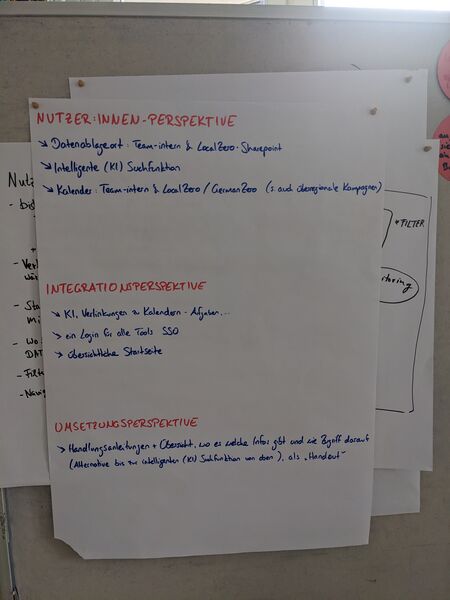 NUTZER:INNEN-PERSPEKTIVE
↘ Datenablageort: Team-intern & LocalZero-Sharepoint
↘ Intelligente (KI) Suchfunktion
↘ Kalender: Team-intern & LocalZero / GermanZero (s. auch überregionale Kampagnen)
INTEGRATIONSPERSPEKTIVE
↘ KI, Verlinkungen zu Kalendern - Aufgaben...
↘ ein Login für alle Tools SSO
↘ übersichtliche Startseite
UMSETZUNGSPERSPEKTIVE
↘ Handlungsanleitungen + Übersicht, wo es welche Infos gibt und wie Zugriff darauf
(Alternative bis zur intelligenten (KI) Suchfunktion von oben), als "Handout"
Nutz
- Filt
- Navig
DAT
+ FILTER